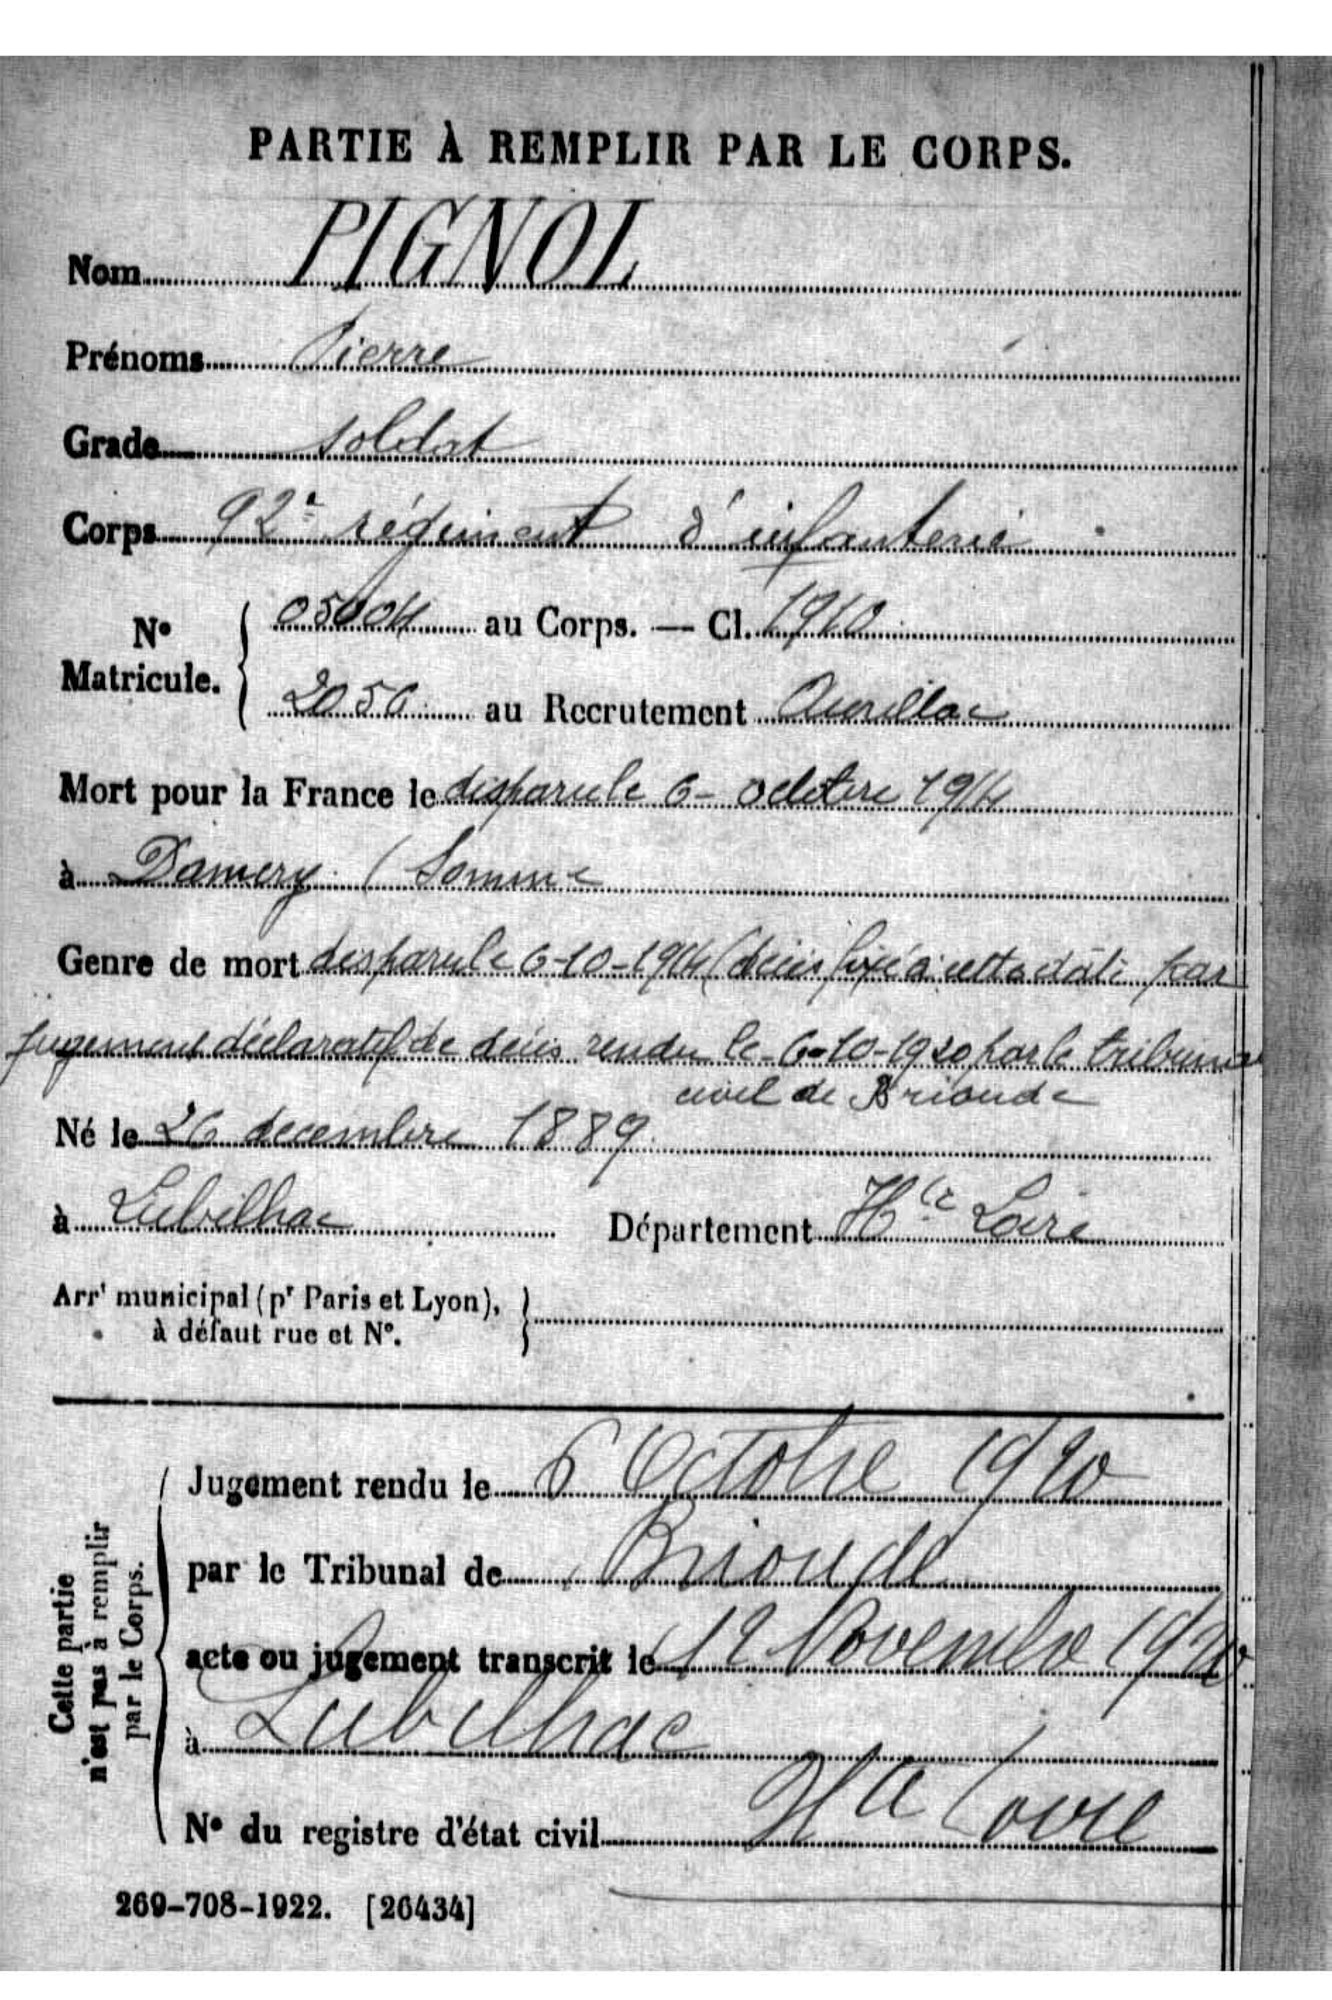 PARTIE À REMPLIR PAR LE CORPS.
Nom PIGNOL
Prénoms Pierre
Grade soldat
Corps 92e régiment d'infanterie
N° Matricule. { 05004 au Corps. — Cl. 1910
2056 au Recrutement Aurillac
Mort pour la France le disparu le 6 - octobre 1914
à Damery (Somme
Genre de mort disparu le 6-10-1914 (décès fixé à cette date par
jugement déclaratif de décès rendu le 6-10-1920 par le tribunal
civil de Brioude
Né le 26 decembre 1889
à Lubilhac Département Hte Loire
Arrt municipal (pr Paris et Lyon),
à défaut rue et N°.
Cette partie
n'est pas à remplir
par le Corps.
Jugement rendu le 6 Octobre 1920
par le Tribunal de Brioude
acte ou jugement transcrit le 12 Novembre 1920
à Lubilhac
Hte Loire
N° du registre d'état civil
269-708-1922. [26434]